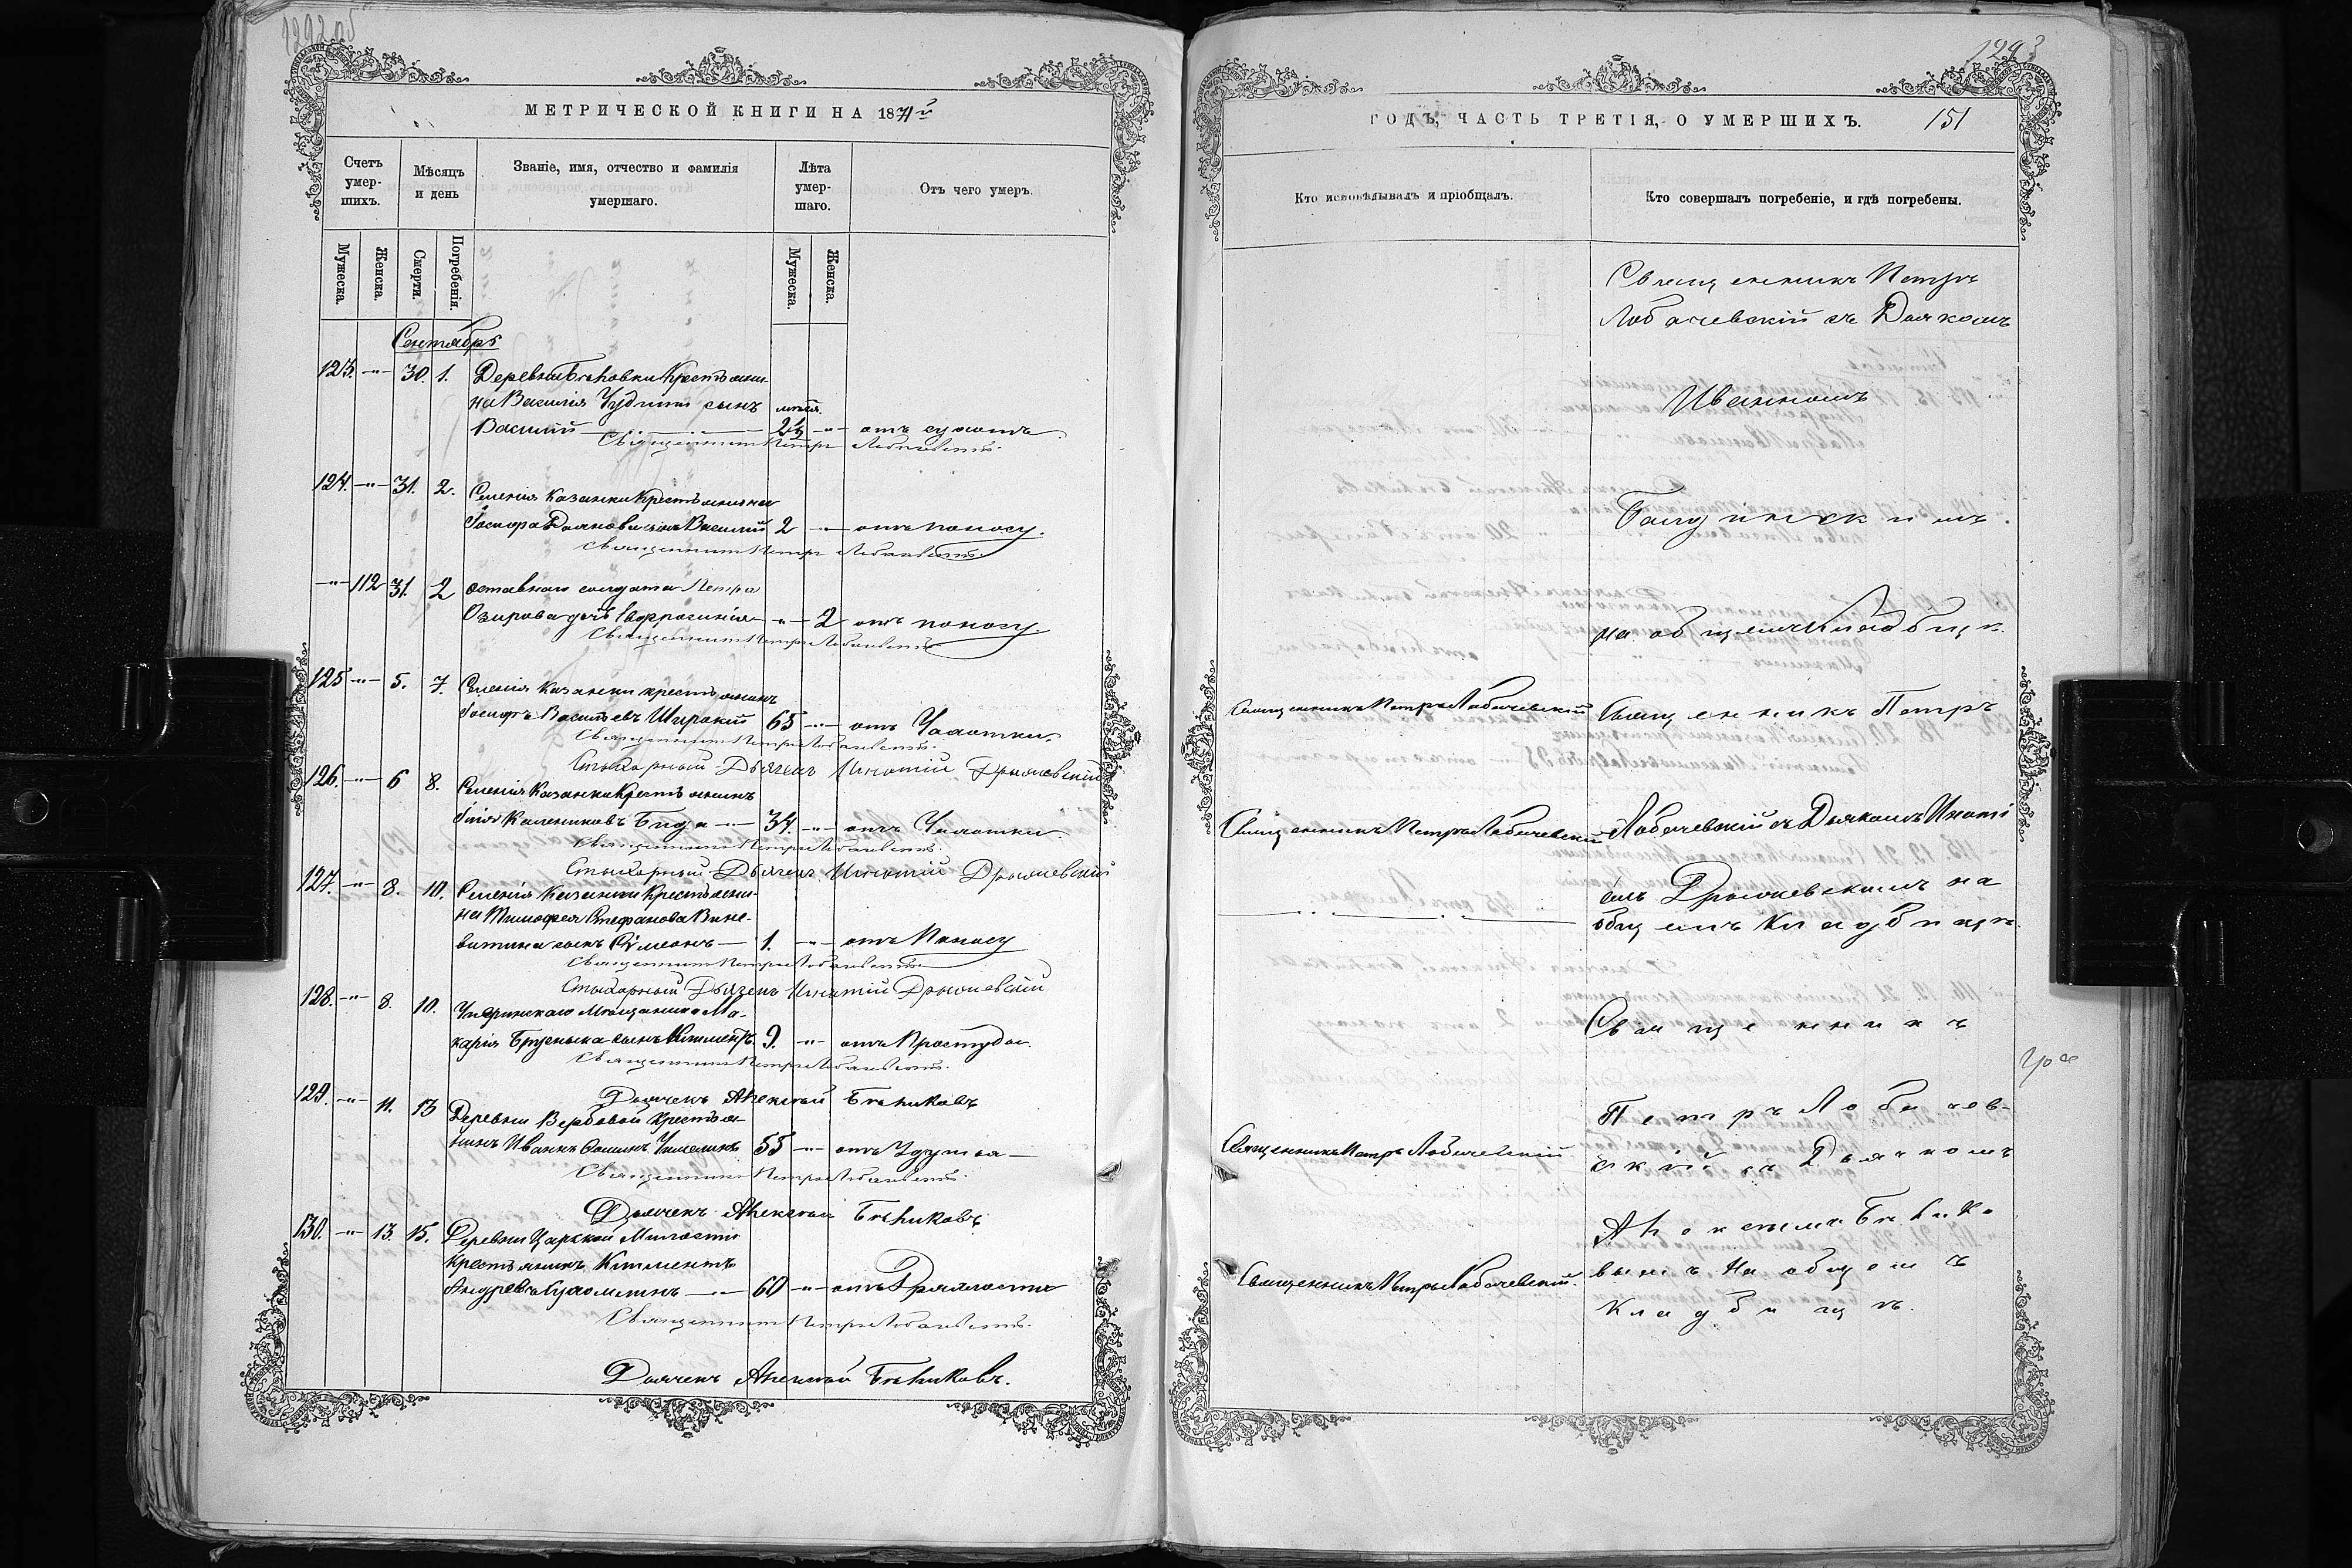 МЕТРИЧЕСКОЙ КНИГИ НА 1871й
Счетъ умер-шихъ.
Мѣсяцъ и день
Званіе, имя, отчество и фамилія умершаго.
Лѣта умер-шаго.
Отъ чего умеръ.
Мужеска.
Женска.
Смерти.
Погребенія.
Мужеска.
Женска.
Сентябрь
123. -"- 30. 1. Деревни Крестьяни-
на Василія сынъ
Василій -"- отъ
Священникъ Петръ Лобачевскій
124. -"- 31. 2. Селенія Казанки Крестьянина
сынъ Василій 2 -"- отъ поносу.
Священникъ Петръ Лобачевскій
-"- 112 31. 2 Отставнаго солдата Петра
Озирова дочь Евфросинія -"- 2 отъ поносу.
Священникъ Петръ Лобачевскій
125 -"- 5. 7. Селенія Казанки крестьянинъ
Іосифъ Васильевъ Широкій 65 -"- отъ Чахотки.
Священникъ Петръ Лобачевскій
Стихарный Дьячекъ Игнатій
126. -"- 6 8. Селенія Казанки Крестьянинъ
Илія Бида 34. -"- отъ Чахотки.
Священникъ Петръ Лобачевскій
Стихарный Дьячекъ Игнатій
127. -"- 8. 10. Селенія Казанки Крестьяни-
на Тимофея Стефанова Вине-
витина сынъ Сѵмеонъ 1. -"- отъ Поносу
Священникъ Петръ Лобачевскій
Стихарный Дьячекъ Игнатій
128. -"- 8. 10. Мѣщанина Ма-
карія сынъ Климентъ 9. -"- отъ Простуды.
Священникъ Петръ Лобачевскій
Дьячекъ Алексѣй Бѣликовъ
129. -"- 11. 13 Деревни Вербовой Крестья-
нинъ Иванъ 55 -"- отъ Удушья
Священникъ Петръ Лобачевскій
Дьячекъ Алексѣй Бѣликовъ
130. -"- 13. 15. Деревни Царской Милости
Крестьянинъ Климентъ
Андреевъ 60 -"- отъ Дряхлости
Священникъ Петръ Лобачевскій
Дьячекъ Алексѣй Бѣликовъ.
1293
ГОДЪ, ЧАСТЬ ТРЕТІЯ, О УМЕРШИХЪ. 151
Кто исповѣдывалъ и пріобщалъ.
Кто совершалъ погребеніе, и гдѣ погребены.
Священникъ Петръ
Лобачевскій съ Дьякомъ
Иванномъ
на общемъ Кладбищѣ.
Священникъ Петръ Лобачевскій Священникъ Петръ
Священникъ Петръ Лобачевскій Лобачевскій съ Дьякомъ Игнаті
емъ на
общемъ Кладбищѣ.
Священникъ
Петръ Лобачев-
Священникъ Петръ Лобачевскій скій съ Дьячкомъ
Алексѣемъ Бѣлико
Священникъ Петръ Лобачевскій. вымъ на общемъ
Кладбищѣ.